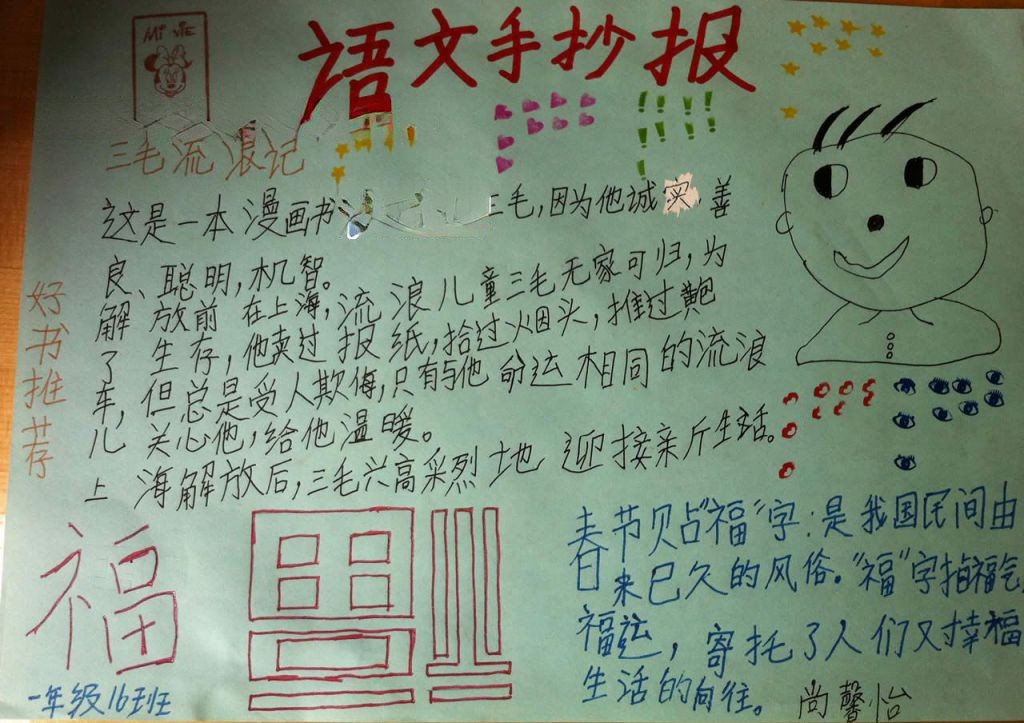 Mi
语文手抄报
三毛流浪记
这是一本漫画书
三毛,因为他诚实、善
良、聪明,机智。
解放前在上海,流浪儿童三毛无家可归,为
了生存,他卖过报纸,拾过烟头,推过
车,但总是受人欺侮,只有与他命运相同的流浪
儿关心他,给他温暖。
上海解放后,三毛兴高采烈地迎接亲斤生活。
好书推荐
福
春节贴“福”字:是我国民间由
来已久的风俗。“福”字指福气,
福运,寄托了人们又幸福
生活的向往。
一年级16班班
尚馨怡